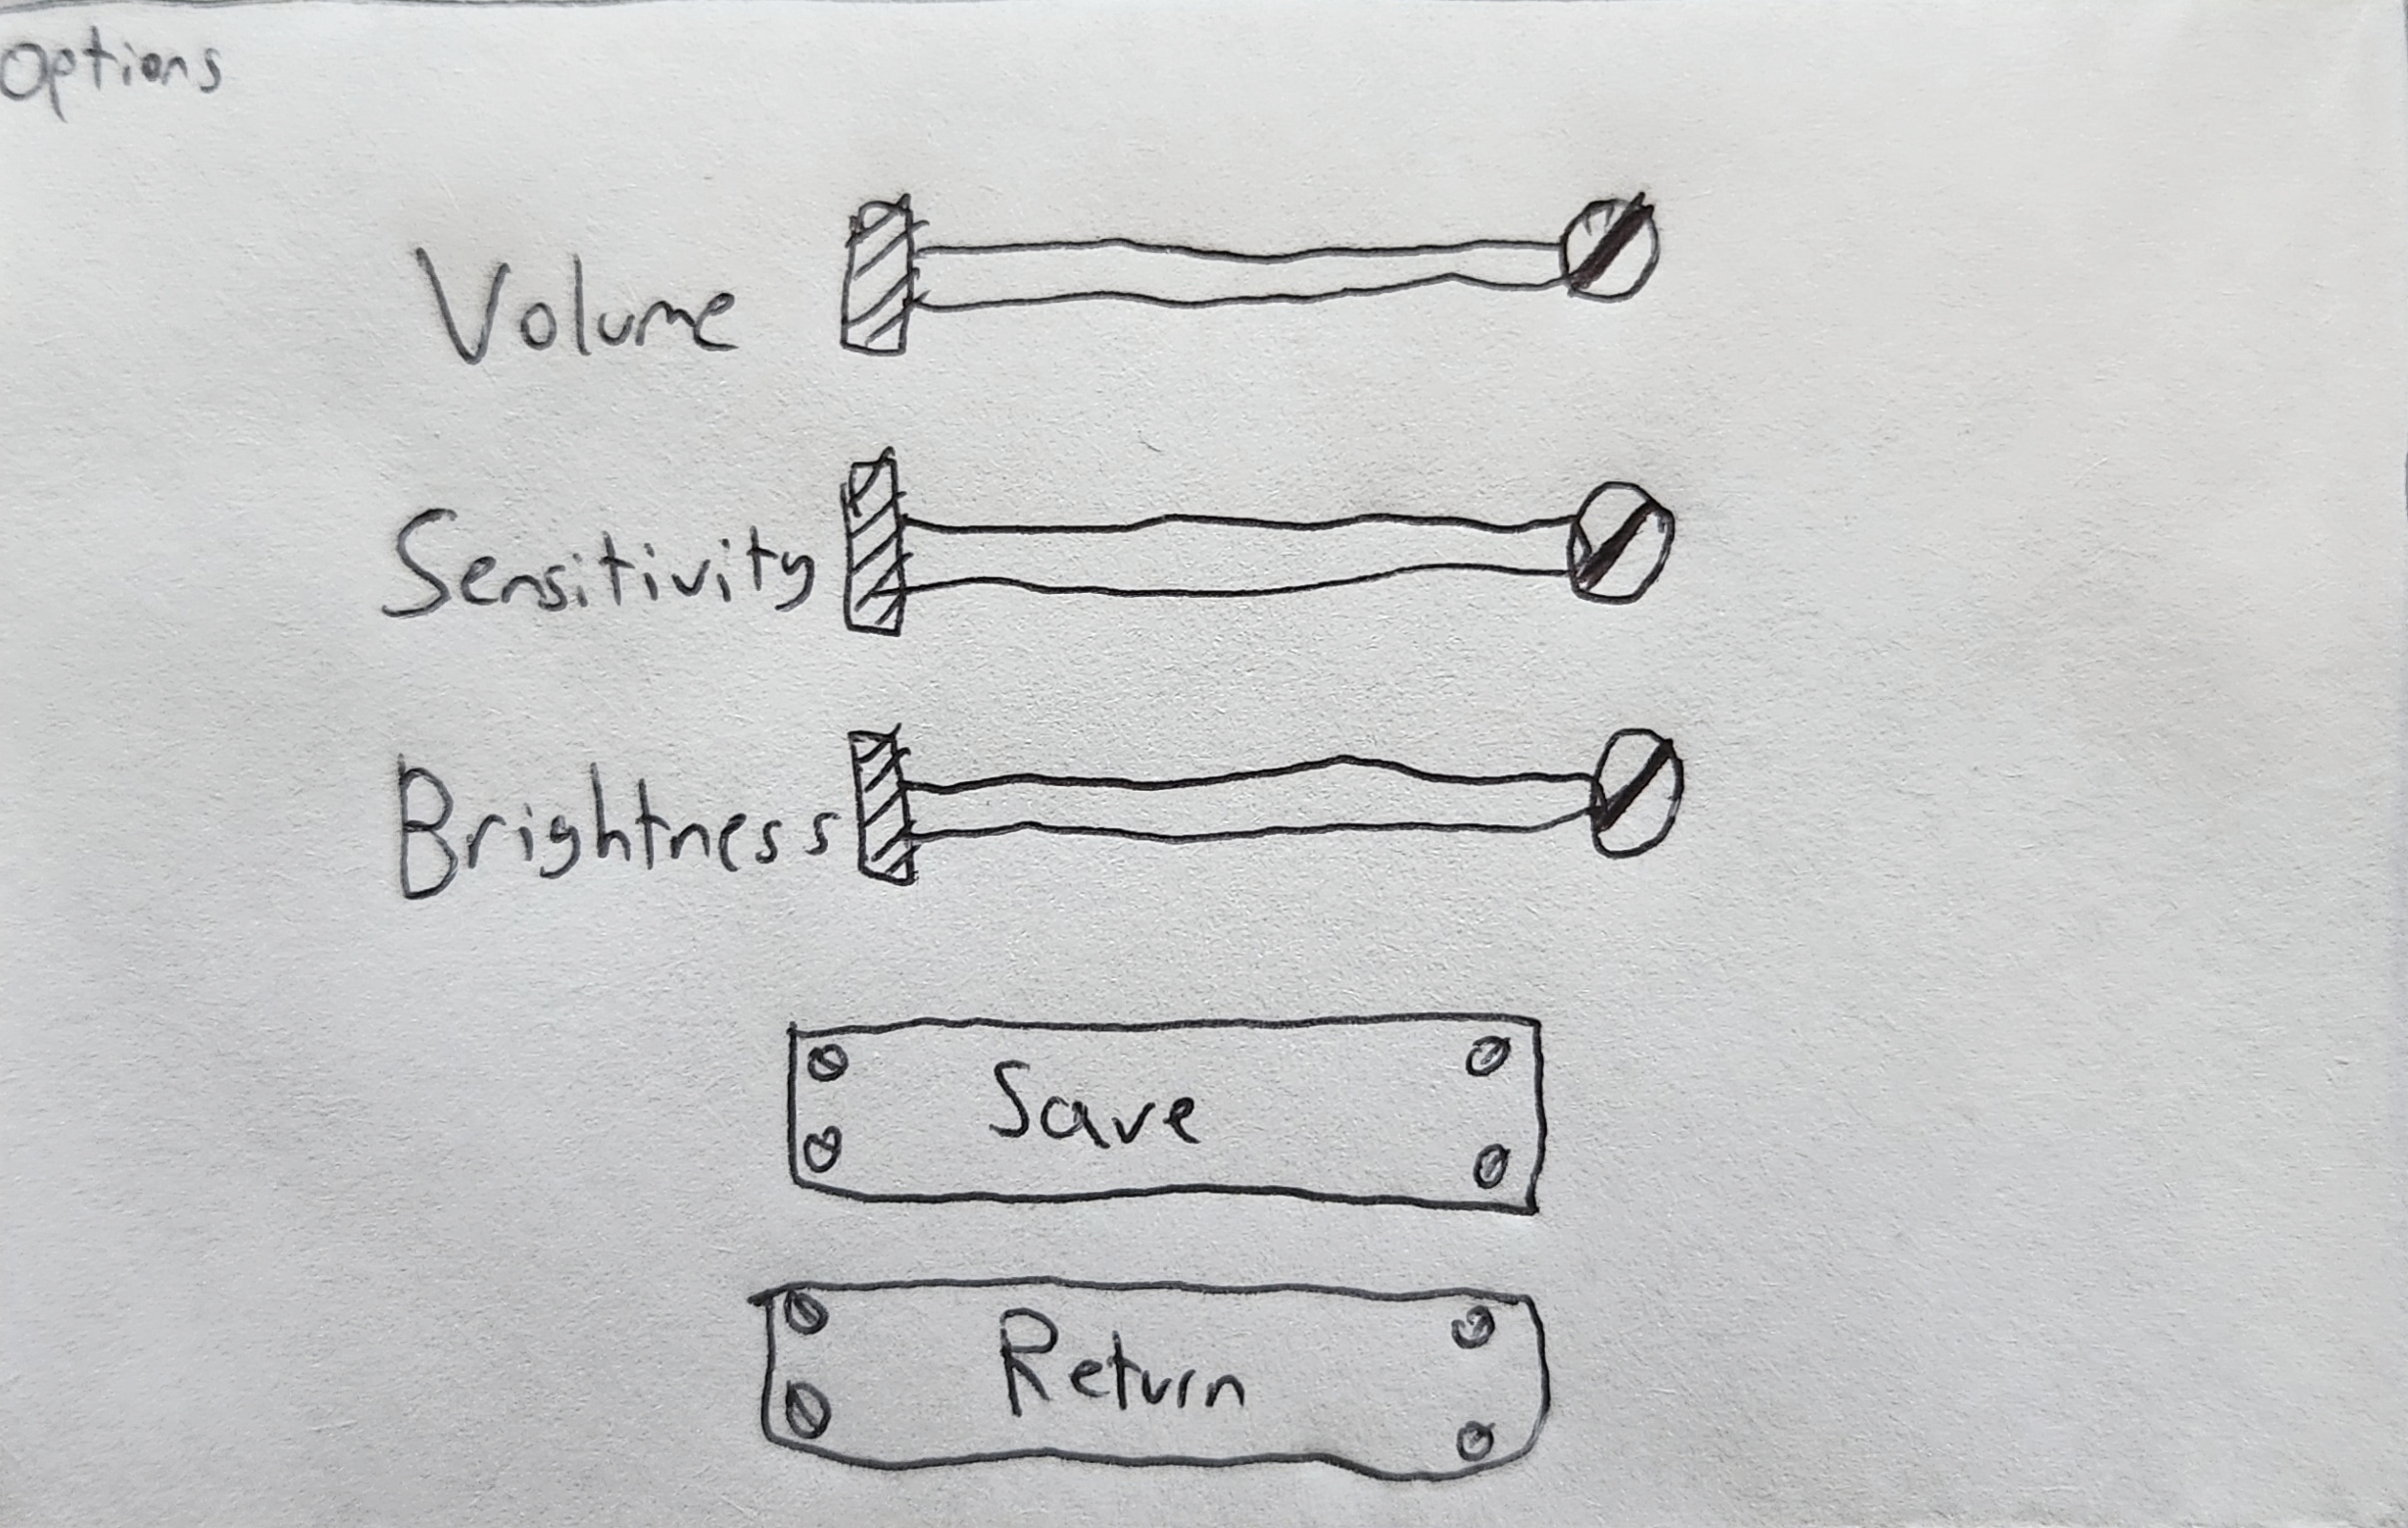 Options
Volume
Sensitivity
Brightness
Save
Return